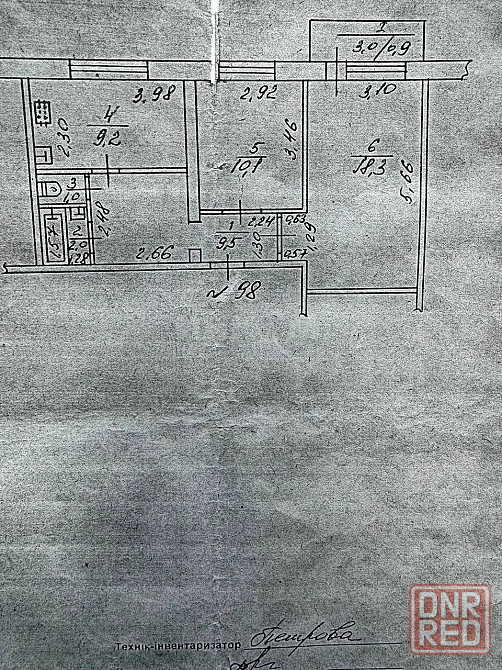 I
3,0/0,9
3,98
2,92
3,10
4
9,2
2,30
5
10,1
3,46
6
18,3
5,66
3
1,0
2,48
1,57
2
2,0
1,28
2,66
1
9,5
2,24
1,30
0,63
1,29
0,57
№ 98
Технік-інвентаризатор Петрова
DNR
RED